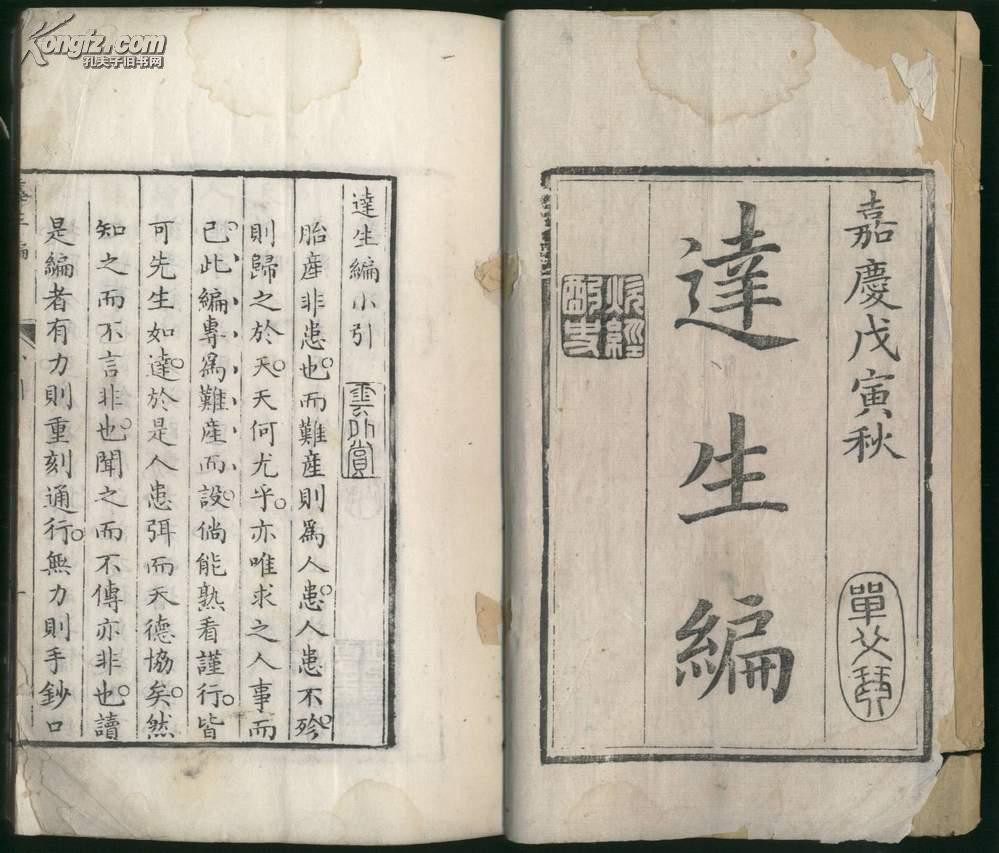 嘉慶戊寅秋
達生編
達生編小引
胎產非患也而難產則爲人患人患不殄
則歸之於天天何尤乎亦唯求之人事而
已此編專爲難產而設倘能熟看謹行皆
可先生如達於是人患弭而天德協矣然
知之而不言非也聞之而不傳亦非也讀
是編者有力則重刻通行無力則手鈔口
Kongfz.com
孔夫子旧书网